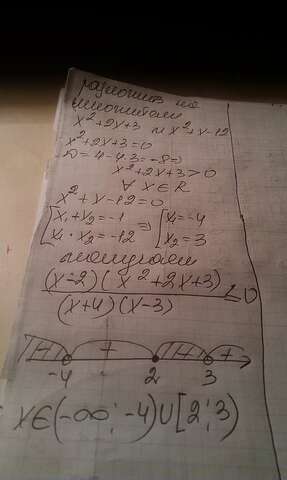 разложим на
множители
x²+2x+3 и x²+x-12
x²+2x+3=0
D=4-4·3=-8⇒
x²+2x+3>0
∀ x∈R
x²+x-12=0
[x₁+x₂=-1 ⇒ [x₁=-4
[x₁·x₂=-12 [x₂=3
получаем
(x-2)(x²+2x+3)
≤0
(x+4)(x-3)
- + - +
-4 2 3
x∈(-∞;-4)∪[2;3)